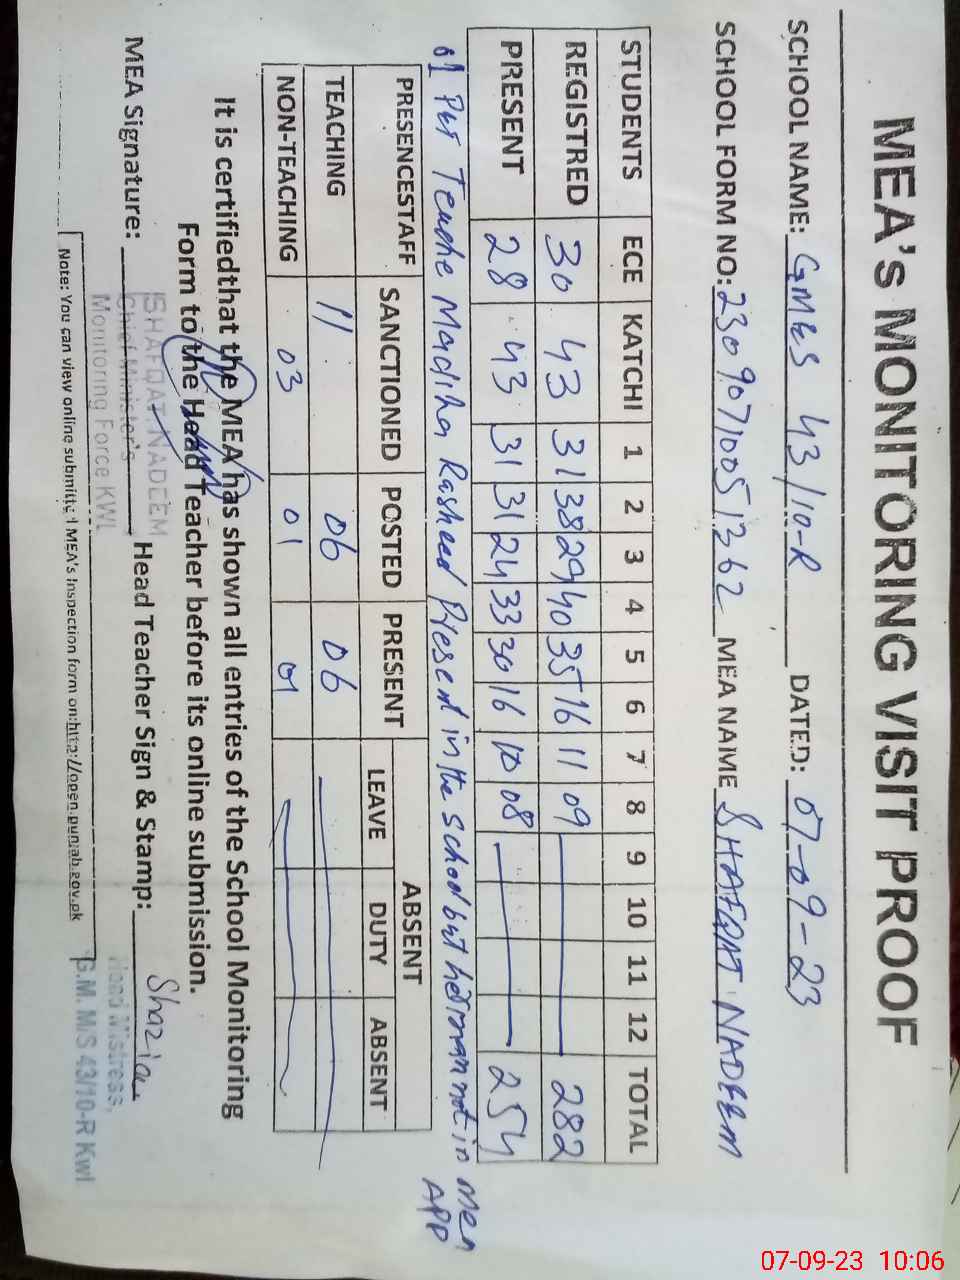 MEA's MONITORING VISIT PROOF
SCHOOL NAME: GMES 43/10-R DATED: 07-09-23
SCHOOL FORM NO: 2309071005 1362 MEA NAME SHAFQAT NADEEM
STUDENTS ECE KATCHI 1 2 3 4 5 6 7 8 9 10 11 12 TOTAL
REGISTRED 30 43 31 38 29 40 35 16 11 09 282
PRESENT 28 43 31 31 24 33 30 16 10 08 254
01 PST Madiha Rasheed Present in the school but her not in Mea APP
PRESENCESTAFF SANCTIONED POSTED PRESENT ABSENT
LEAVE DUTY ABSENT
TEACHING 11 06 06
NON-TEACHING 03 01 01
It is certifiedthat the MEA has shown all entries of the School Monitoring
Form to the Head Teacher before its online submission.
MEA Signature: Head Teacher Sign & Stamp: Shazia
SHAFQAT NADEEM
Chief Minister's
Monitoring Force KWL
Head Mistress,
G.M. M/S 43/10-R Kwl
Note: You can view online submitted MEA's Inspection form on:http://open.punjab.gov.pk
07-09-23 10:06